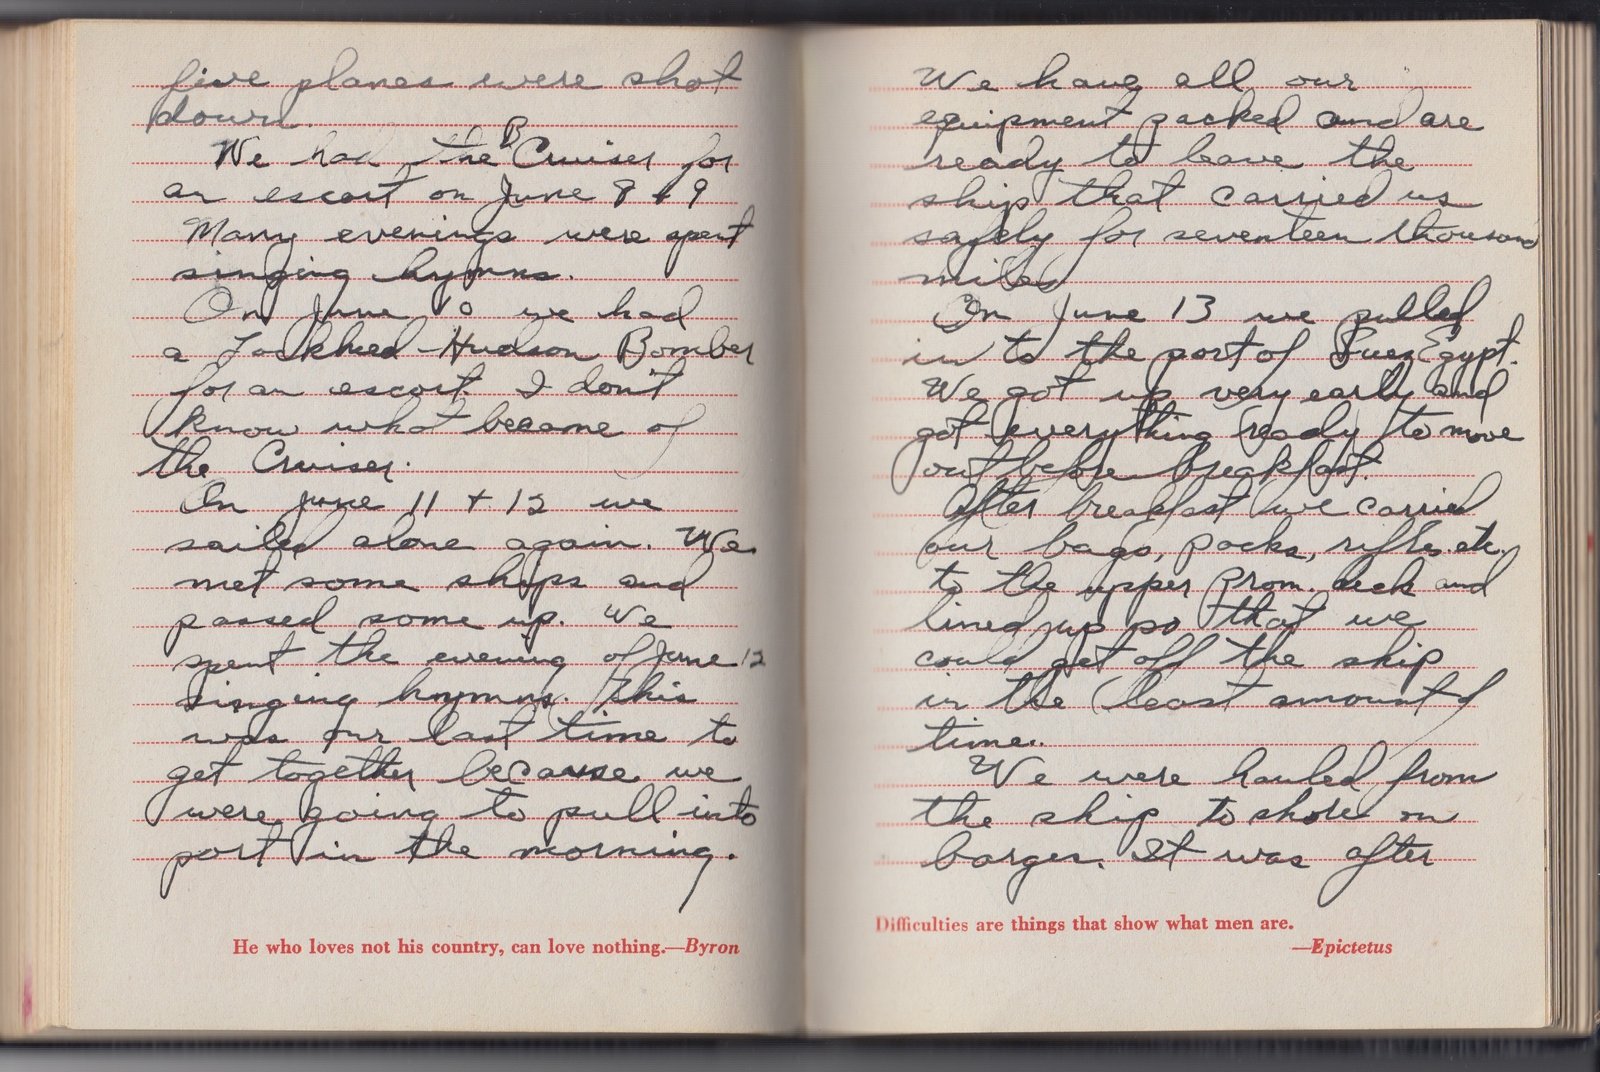 five planes were shot
down.
We had the B Cruiser for
an escort on June 8 & 9
Many evenings were spent
singing hymns.
On June 10 we had
a Lockheed-Hudson Bomber
for an escort. I don't
know what became of
the Cruiser.
On June 11 + 12 we
sailed alone again. We
met some ships and
passed some up. We
spent the evening of June 12
singing hymns. This
was our last time to
get together because we
were going to pull into
port in the morning.
He who loves not his country, can love nothing.—Byron
We have all our
equipment packed and are
ready to leave the
ship that carried us
safely for seventeen thousand
miles
On June 13 we pulled
in to the port of Suez Egypt.
We got up very early and
got everything ready to move
out before breakfast.
After breakfast we carried
our bags, packs, rifles etc.
to the upper Prom. deck and
lined up so that we
could get off the ship
in the least amount of
time.
We were hauled from
the ship to shore on
barges. It was after
Difficulties are things that show what men are.
—Epictetus